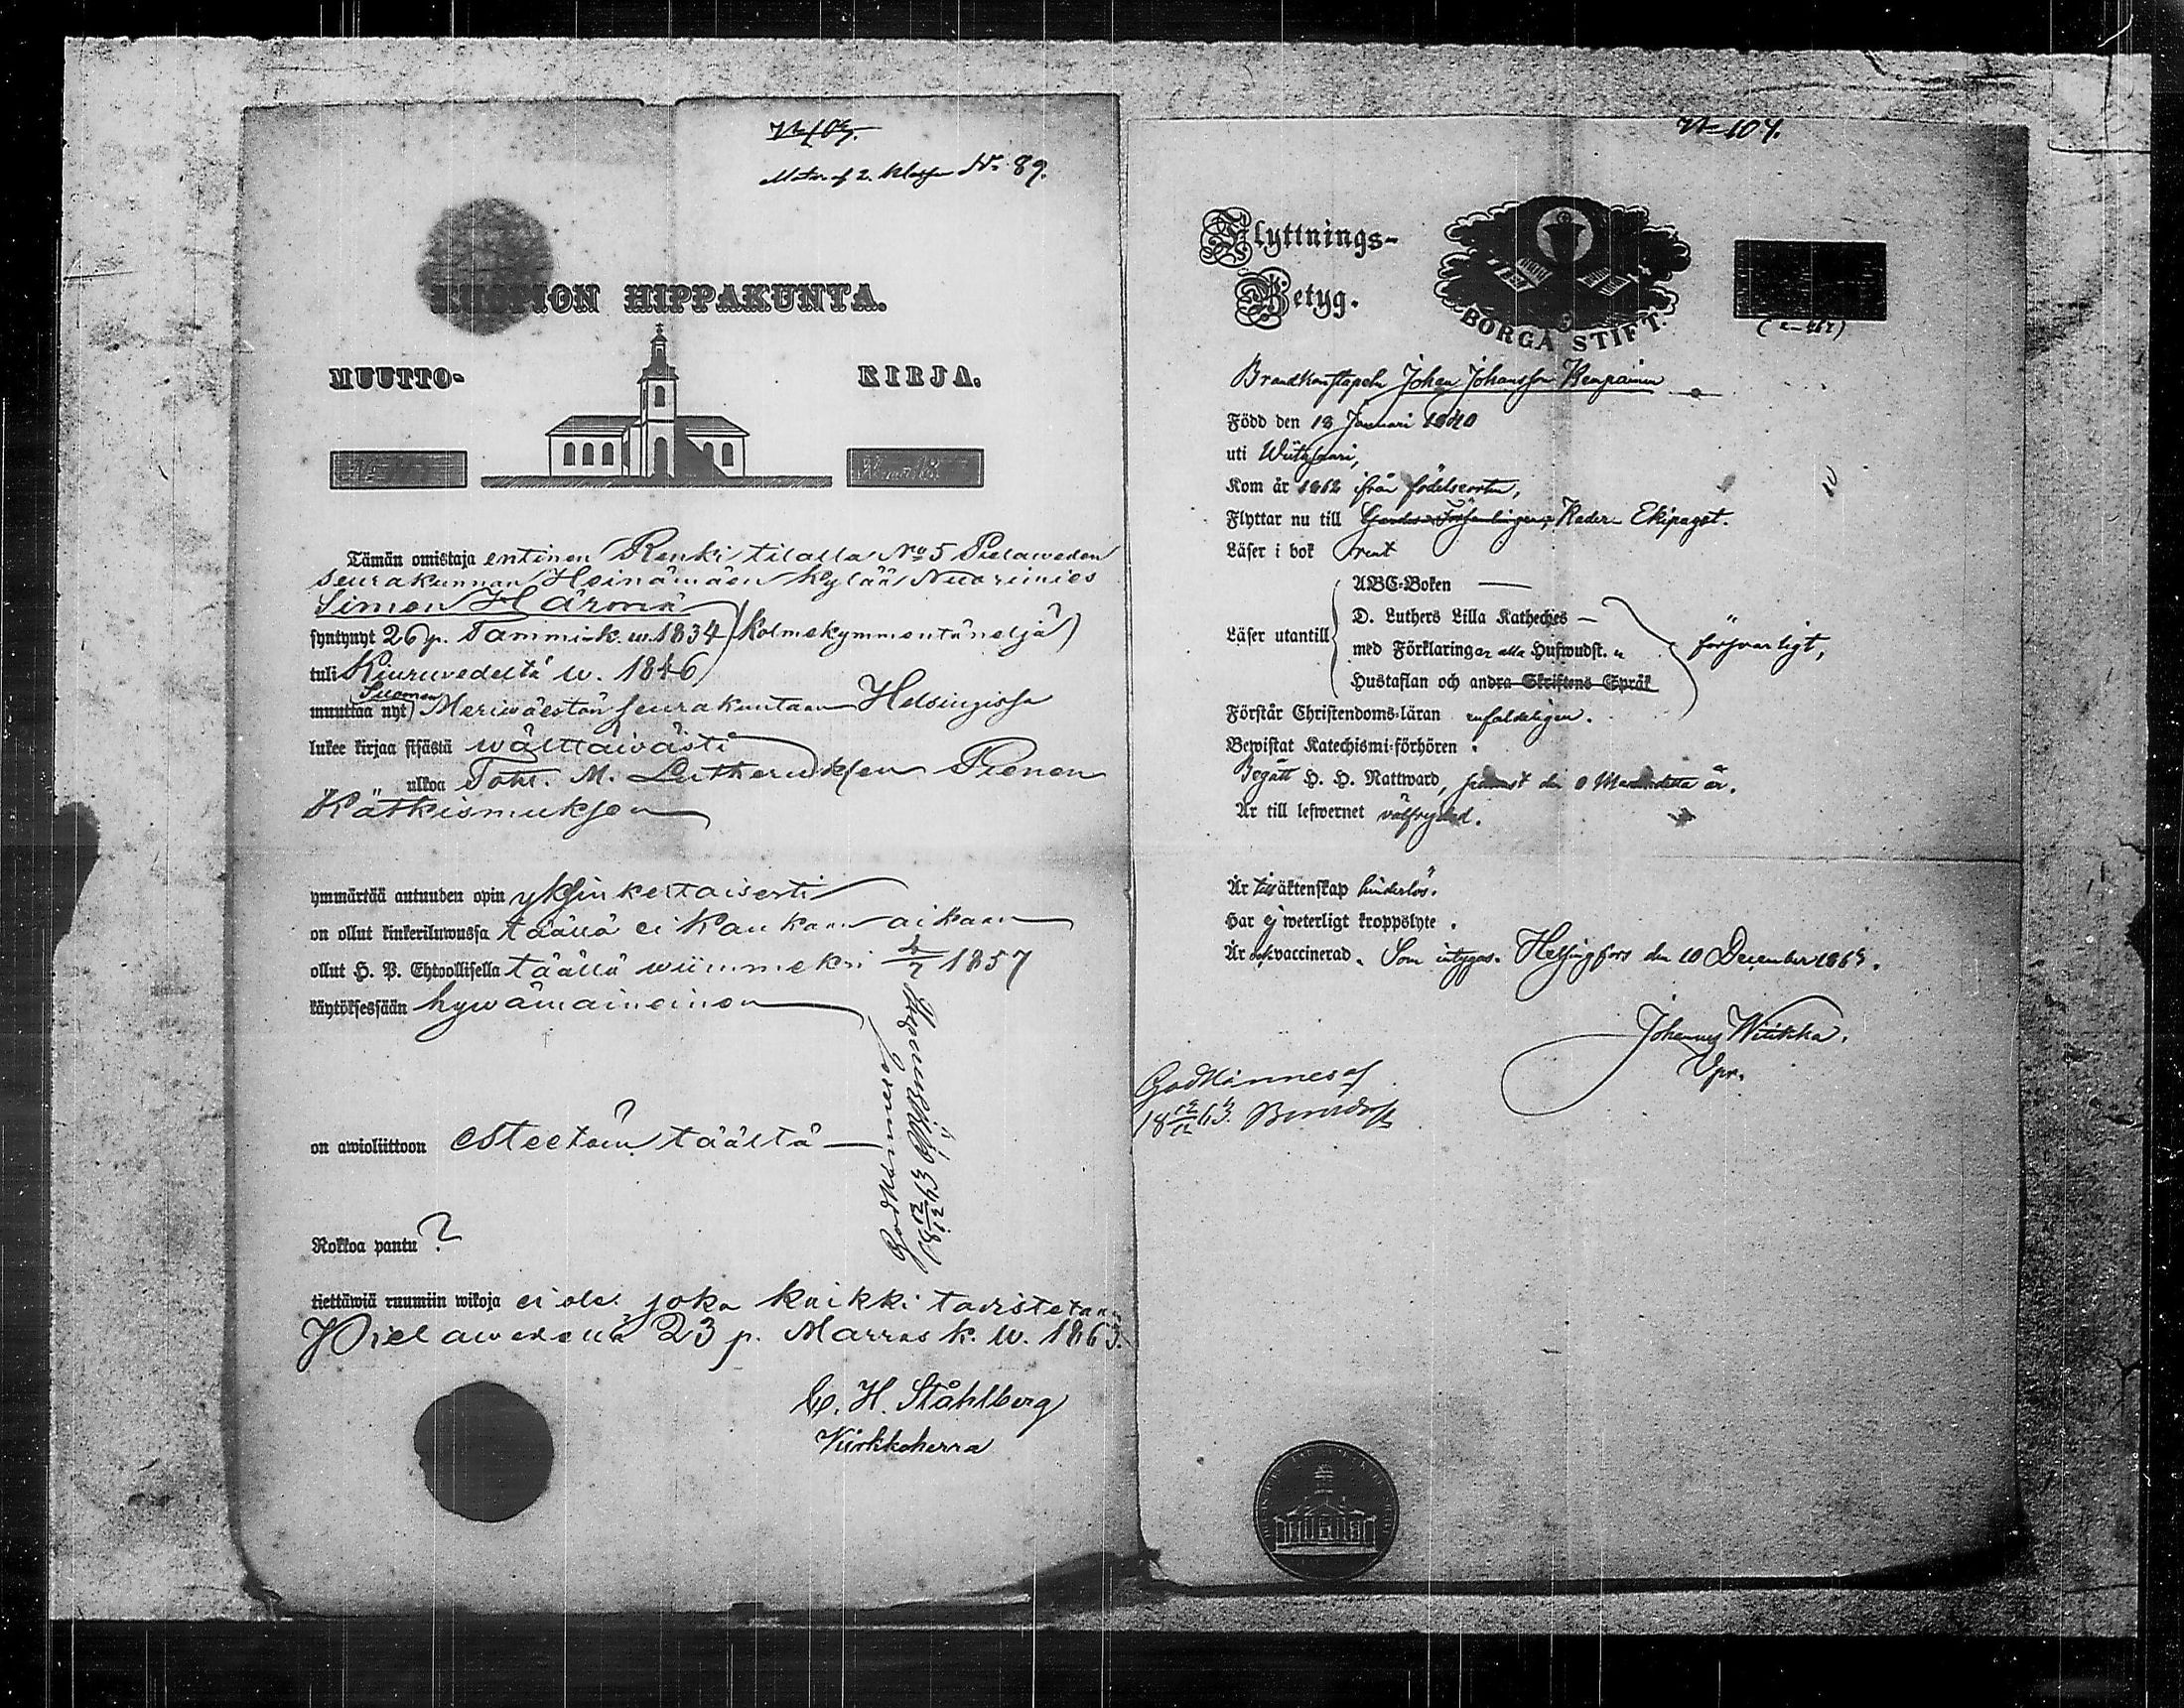 Matr. af 2. Klassen No. 89.
KUOPION HIPPAKUNTA.
MUUTTO- KIRJA.
Tämän omistaja entinen Renki tilalla No 5 Pielaweden
seurakunnan Heinämäen kylää Nuorimies
Simon Härmä
syntynyt 26 p. Tammik. w. 1834 (kolmekymmentäneljä)
tuli Kiuruvedeltä w. 1846
Suomen
muuttaa nyt Meriwäestön seurakuntaan Helsingissä
lukee kirjaa sisästä wälttäwästi
ulkoa Toht. M. Lutheruksen Pienen
Kätkismuksen
ymmärtää autuuden opin yksinkertaisesti
on ollut kinkeriluwussa täällä ei kaukaan aikaan
ollut H. P. Ehtoollisella täällä wiimmeksi 1857
käytöksessään hywämaineinen
on awioliittoon esteetöin täältä
Rokkoa pantu ?
tiettäwiä ruumiin wikoja ei ole. joka kaikki todistetaan
Pielawedellä 23 p. Marrask. w. 1863.
C. H. Ståhlberg
Kirkkoherra
Godkännes af
N 104.
Flyttnings-
Betyg.
BORGÅ STIFT.
Brandkonstapeln Johan Johansson Kemppainen
Född den 18 Januari 1840
uti Wiitasaari,
Kom år 1862 ifrån födelseorten,
Flyttar nu till Gardes-Församlingen, Kader-Ekipaget.
Läser i bok rent
ABC-Boken —
D. Luthers Lilla Katheches —
Läser utantill
med Förklaringer alla Hufwudst. försvarligt,
Hustaflan och andra Skriftens Språk
Förstår Christendoms-läran enfaldeligen.
Bewistat Katechismi-förhören.
Begått H. H. Nattward, den detta år.
Är till lefwernet välfrejdad.
Är till äktenskap hinderlös.
Har ej weterligt kroppslyte.
Är ock vaccinerad. Som intygas. Helsingfors den 10 December 1863.
Johannes Wiikka.
Godkännes af
18 12/12 63.